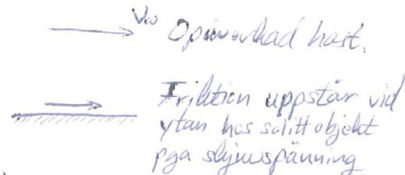 V∞ Opåverkad hast.
Friktion uppstår vid
ytan hos solitt objekt
pga skjuvspänning